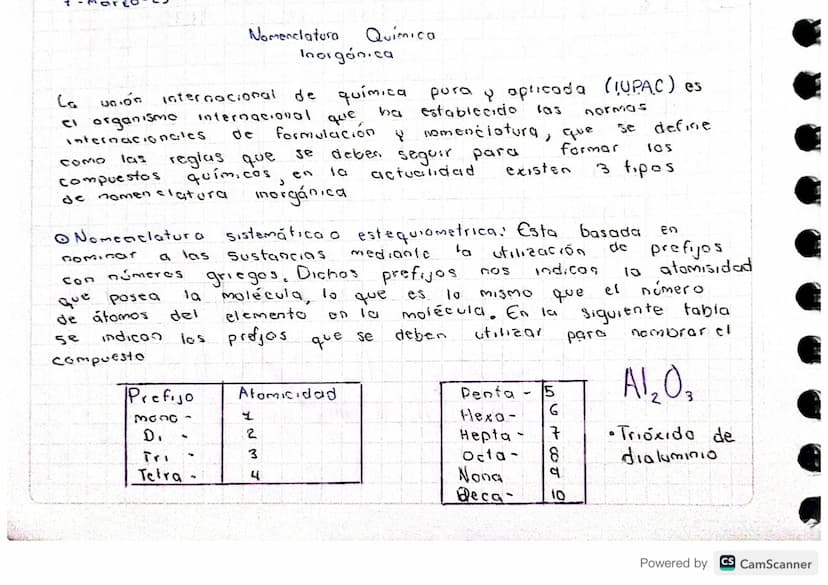 7-Marzo-23
Nomenclatura Química
Inorgánica
La unión internacional de química pura y aplicada (IUPAC) es
el organismo internacional que, ha establecido las normas
internacionales de formulación y nomenclatura, que se define
como las reglas que se deben seguir para formar los
compuestos químicos, en la actualidad existen 3 tipos
de nomenclatura inorgánica
Nomenclatura sistemática o estequiometrica: Esta basada en
nominar a las sustancias mediante la utilización de prefijos
con números griegos. Dichos prefijos nos indican la atomisidad
que posea la molécula, lo que es lo mismo que el número
de átomos del elemento en la molécula. En la siguiente tabla
se indican los prefijos que se deben utilizar para nombrar el
compuesto
Prefijo Atomicidad
mono - 1
Di - 2
Tri - 3
Tetra - 4
Penta - 5
Hexa - 6
Hepta - 7
Octa - 8
Nona 9
Deca - 10
Al₂O₃
• Trióxido de
dialuminio
Powered by CS CamScanner